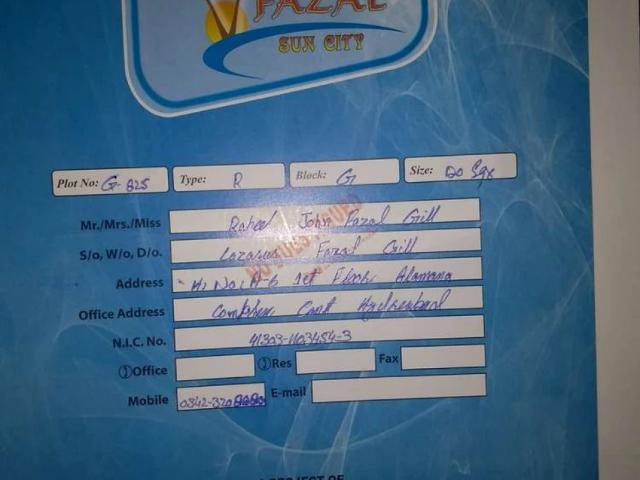 FAZAL
SUN CITY
Plot No: G-825 Type: R Block: G Size: 120 Sqs
Mr./Mrs./Miss Raheel John Fazal Gill
S/o, W/o, D/o. Lazarus Fazal Gill
Address H. No: A-6 1st Floor Alamana
Office Address Complex Cant Hyderabad
N.I.C. No. 41303-1103454-3
①Office ②Res Fax
Mobile 0342-320 E-mail
PROJECT OF